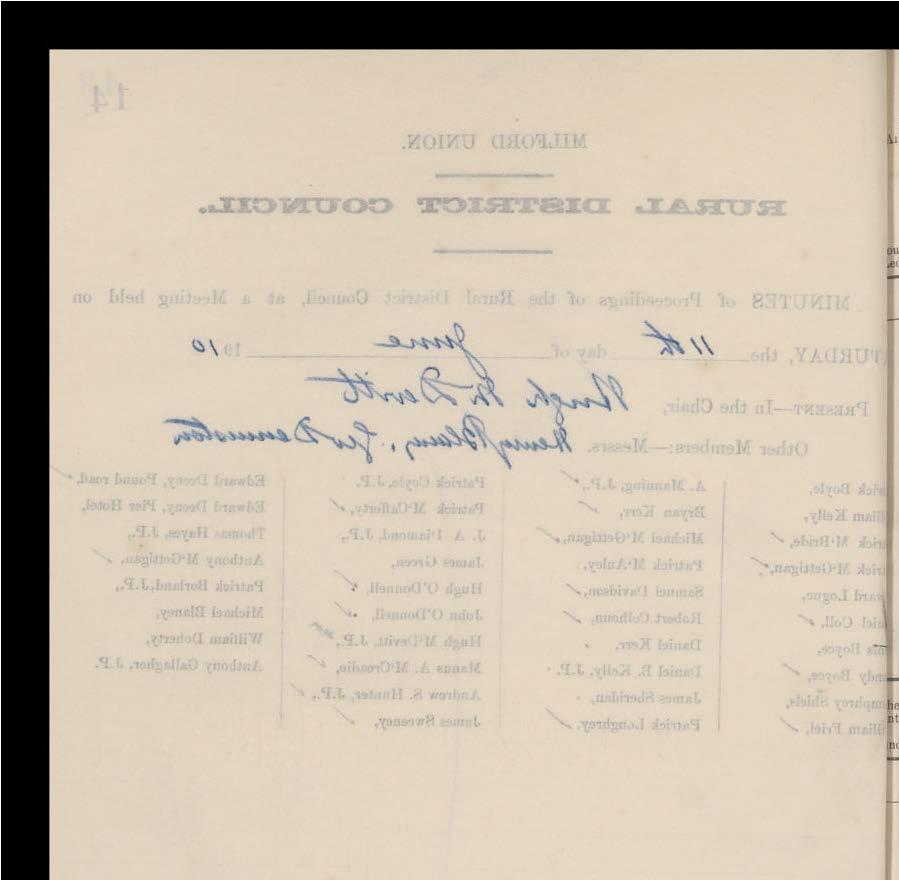 14
MILFORD UNION.
RURAL DISTRICT COUNCIL.
MINUTES of Proceedings of the Rural District Council, at a Meeting held on
ATURDAY, the 11th day of June 1910
PRESENT—In the Chair, Hugh McDevitt
Other Members:—Messrs. Henry Blaney, Geo Denniston
rick Boyle,
lliam Kelly,
rick M'Bride,
trick M'Gettigan,
ward Logue,
niel Coll,
Boyce,
ndy Boyce,
mphrey Shiels,
illiam Friel,
A. Manning, J.P.,
Bryan Kerr,
Michael M'Gettigan,
Patrick M'Auley,
Samuel Davidson,
Robert Colhoun,
Daniel Kerr,
Daniel B. Kelly, J.P.
James Sheridan,
Patrick Loughrey,
Patrick Coyle, J.P.
Patrick M'Cafferty,
J. A Diamond, J.P.,
James Green,
Hugh O'Donnell,
John O'Donnell,
Hugh M'Devitt, J.P.,
Manus A. M'Creadie,
Andrew S. Hunter, J.P.,
James Sweeney,
Edward Deeny, Pound road,
Edward Deeny, Pier Hotel,
Thomas Hayes, J.P.,
Anthony M'Gettigan,
Patrick Borland, J.P.,
Michael Blaney,
William Doherty,
Anthony Gallagher, J.P.